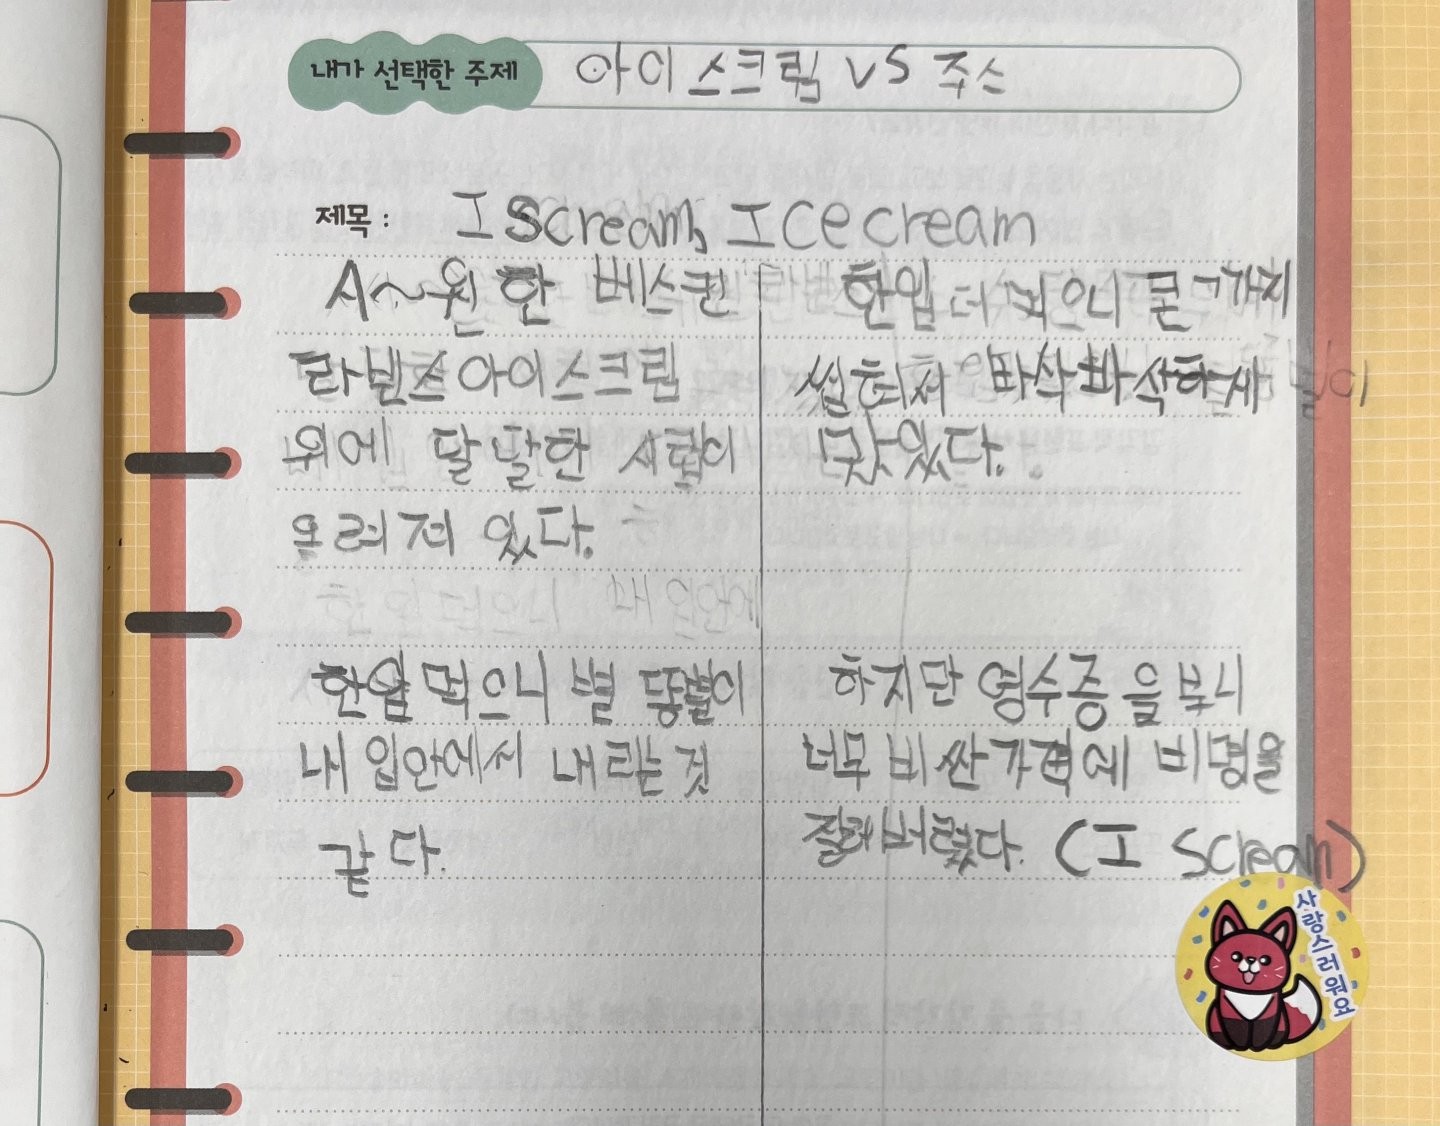 내가 선택한 주제 아이스크림 vs 주스
제목 : I scream, Ice cream
A~원한 베스퀸
라빈스 아이스크림
위에 달달한 시럽이
올려져 있다.
한입 먹으니 별똥별이
내 입안에서 내리는 것
같다.
한입 더 먹으니 콘
씹혀져 바삭바삭하게
맛있다.
하지만 영수증을 보니
너무 비싼가격에 비명을
질레버렸다. (I scream)
사랑스러워요